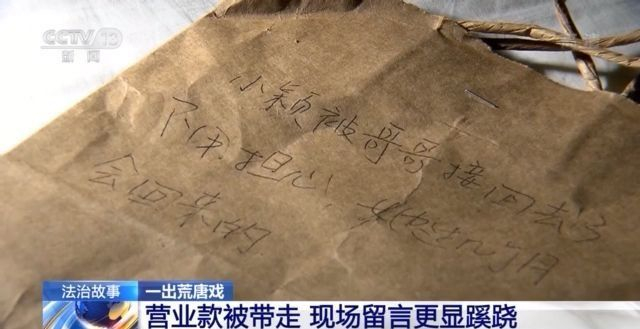 CCTV 13
新闻
小颖被哥哥接回去了
不用担心,她过几个月
会回来的
法治故事 一出荒唐戏
营业款被带走 现场留言更显蹊跷